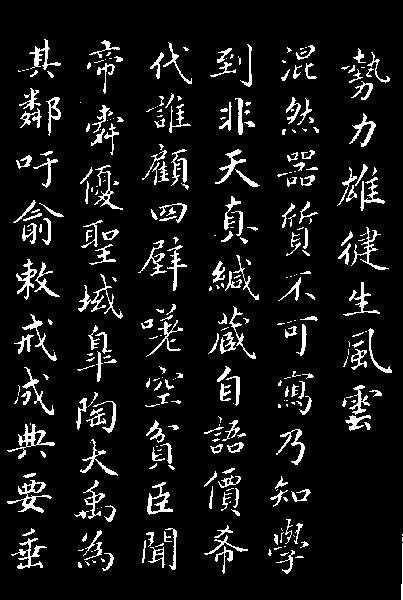 勢力雄健生風雲
混然器質不可寫乃知學
到非天真緘蔵自語價希
代誰顧四壁嘆空貧臣聞
帝舜優聖域皐陶大禹為
其鄰吁俞敕戒成典要垂